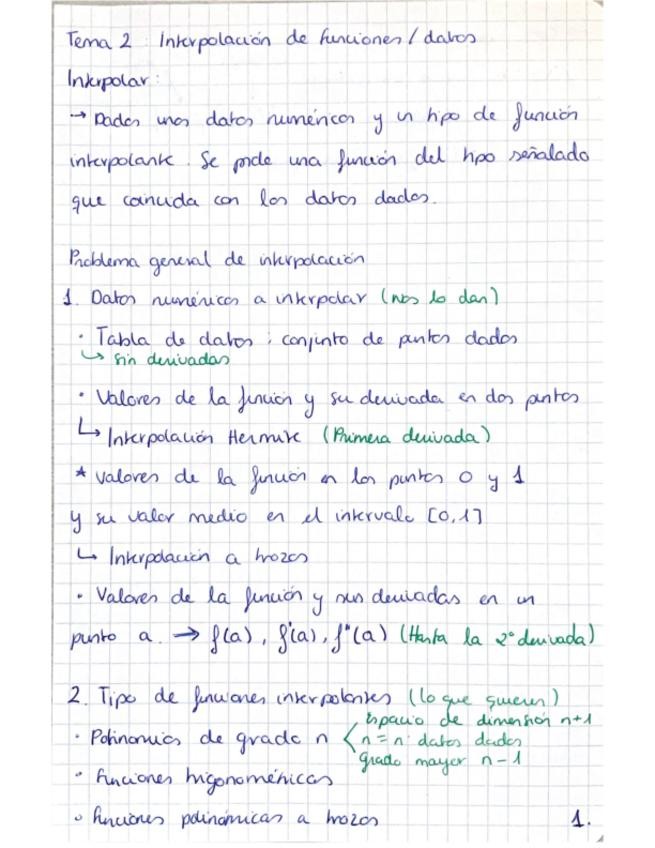 Tema 2 : Interpolación de funciones / datos
Interpolar :
→ Dados unos datos numéricos y un tipo de función
interpolante. Se pide una función del tipo señalado
que coincida con los datos dados.
Problema general de interpolación
1. Datos numéricos a interpolar (nos lo dan)
· Tabla de datos : conjunto de puntos dados
↳ sin derivadas
· Valores de la función y su derivada en dos puntos
↳ Interpolación Hermite (Primera derivada)
* Valores de la función en los puntos 0 y 1
y su valor medio en el intervalo [0,1]
↳ Interpolación a trozos
· Valores de la función y sus derivadas en un
punto a. → f(a), f'(a), f"(a) (Hasta la 2º derivada)
2. Tipo de funciones interpolantes (lo que quieren)
Espacio de dimensión n+1
· Polinomios de grado n < n = nº datos dados
grado mayor n-1
· Funciones trigonométricas
· Funciones polinómicas a trozos
1.